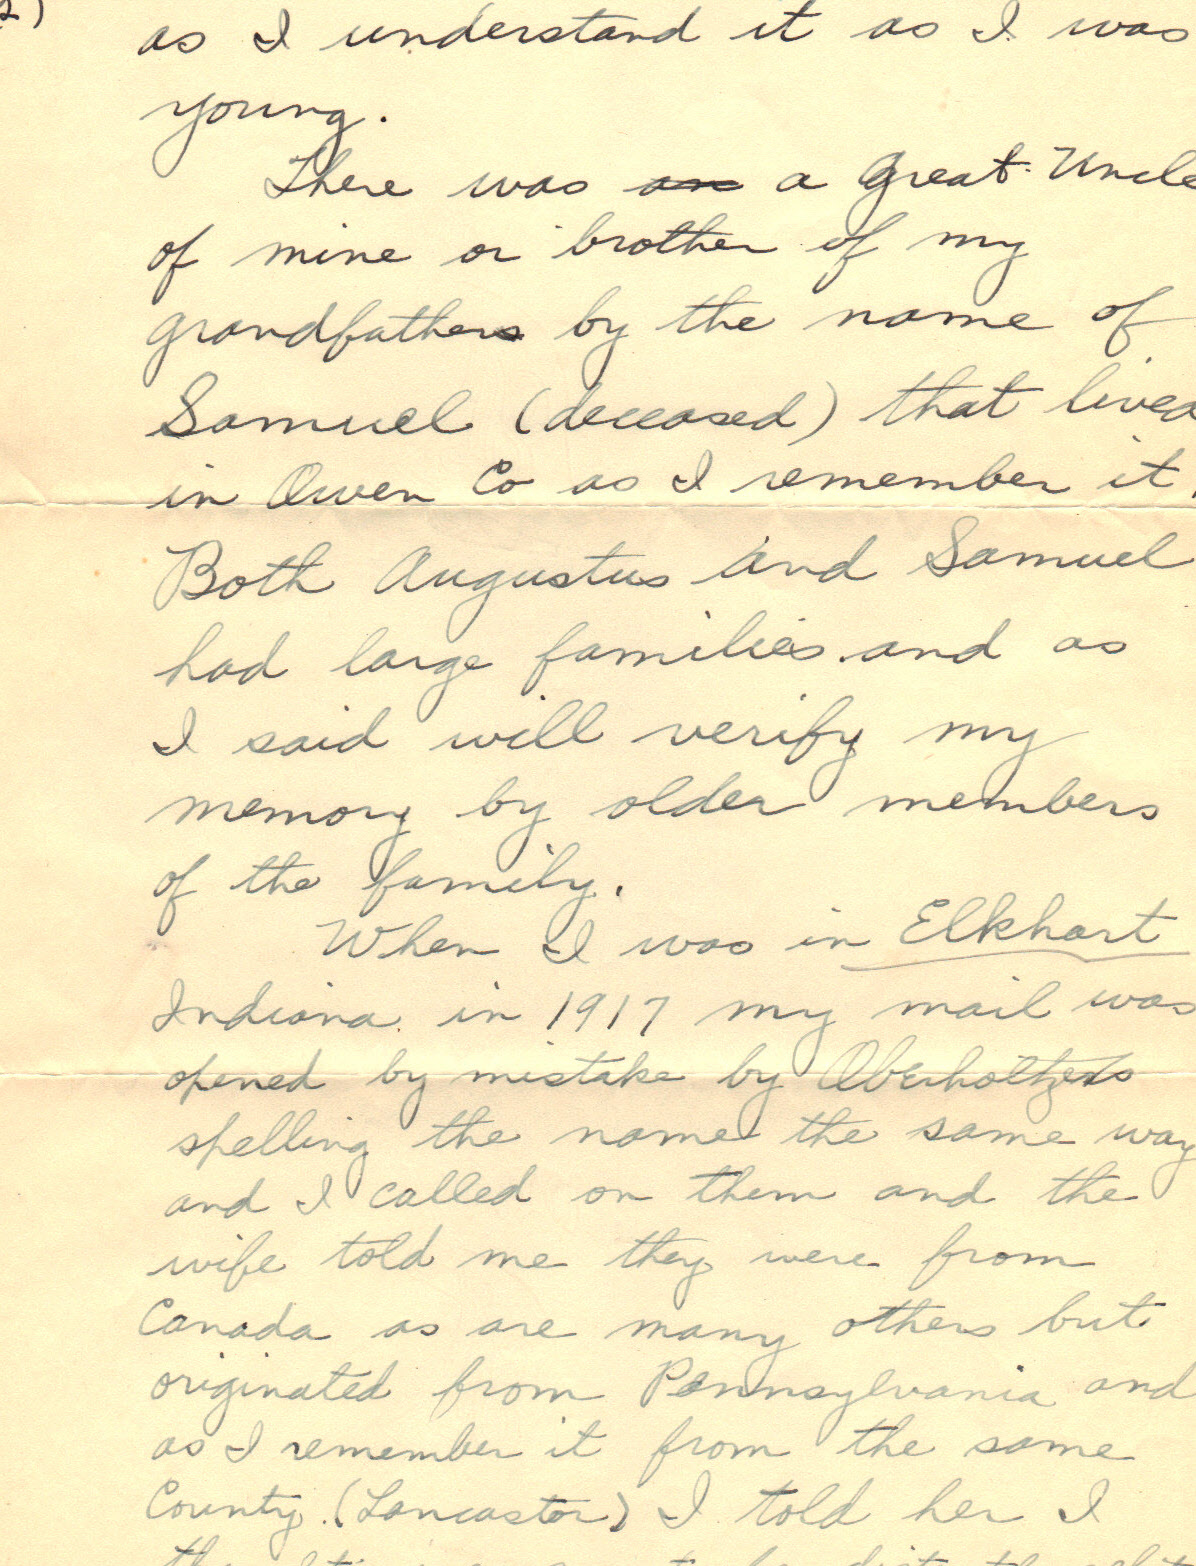 2)
as I understand it as I was
young.
There was an a great Uncle
of mine or brother of my
grandfathers by the name of
Samuel (deceased) that lived
in Owen Co as I remember it,
Both Augustus and Samuel
had large families and as
I said will verify my
memory by older members
of the family.
When I was in Elkhart
Indiana in 1917 my mail was
opened by mistake by Oberholtzers
spelling the name the same way
and I called on them and the
wife told me they were from
Canada as are many others but
originated from Pennsylvania and
as I remember it from the same
County (Lancaster) I told her I